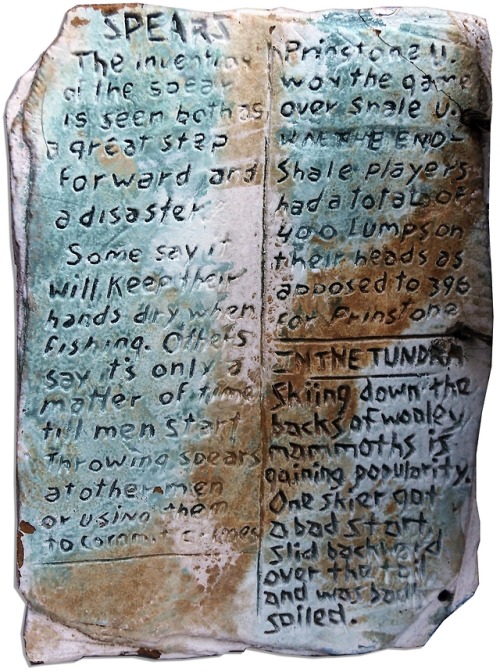 SPEARS
The invention
of the spear
is seen both as
a great step
forward and
a disaster.
Some say it
will keep their
hands dry when
fishing. Others
say it's only a
matter of time
till men start
throwing spears
at other men
or using them
to commit crimes
Prinstone U.
won the game
over Shale U.
THE END-
Shale players
had a total of
400 lumps on
their heads as
apposed to 396
for Prinstone
IN THE TUNDRA
Skiing down the
backs of wooley
mammoths is
gaining popularity.
One skier got
a bad start
slid backward
over the tail
and was badly
soiled.